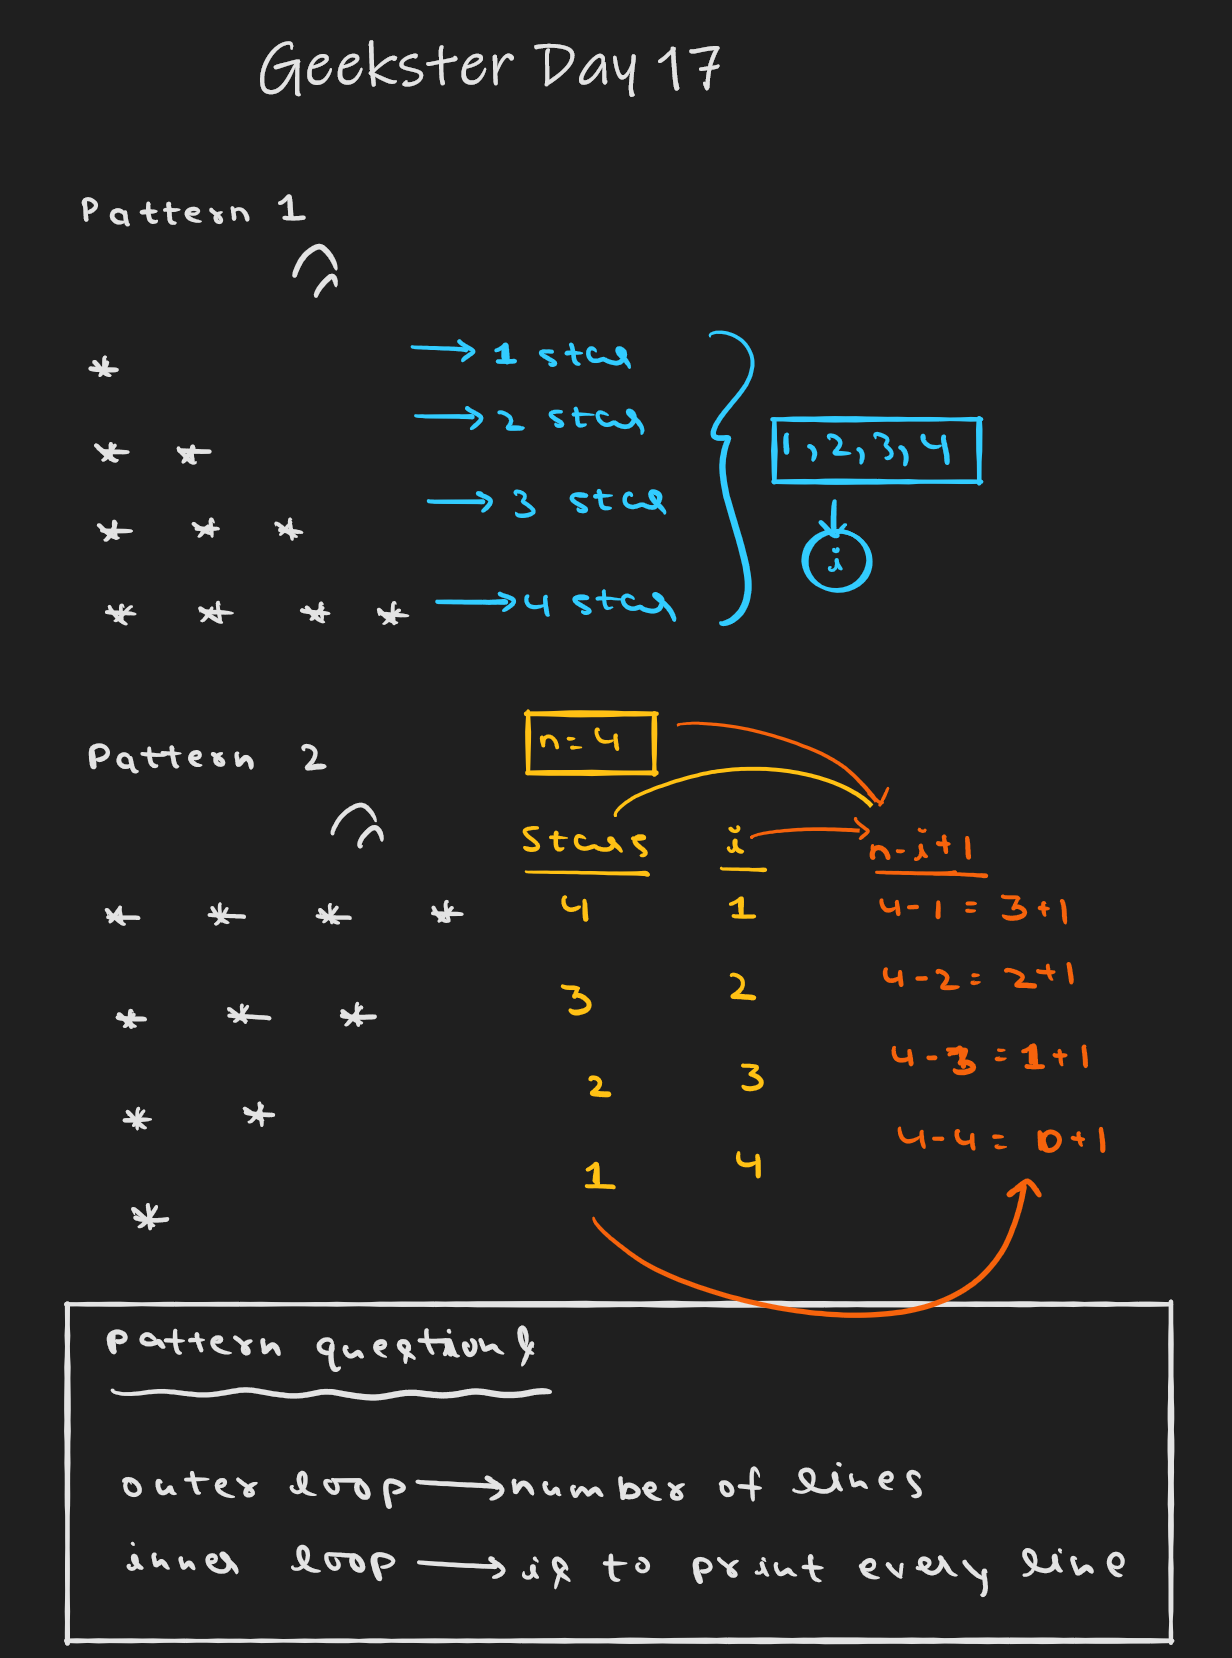 Geekster Day 17
Pattern 1
* → 1 star
* * → 2 star
* * * → 3 star
* * * * → 4 star
1, 2, 3, 4
i
n = 4
Pattern 2
Stars i n-i+1
* * * * 4 1 4-1 = 3+1
* * * 3 2 4-2 = 2+1
* * 2 3 4-3 = 1+1
* 1 4 4-4 = 0+1
pattern questions
outer loop → number of lines
inner loop → is to print every line